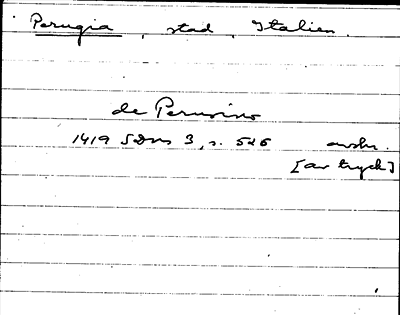 Perugia, stad, Italien.
de Perusino
1419 SDns 3, s. 526 avskr.
[av tryck]